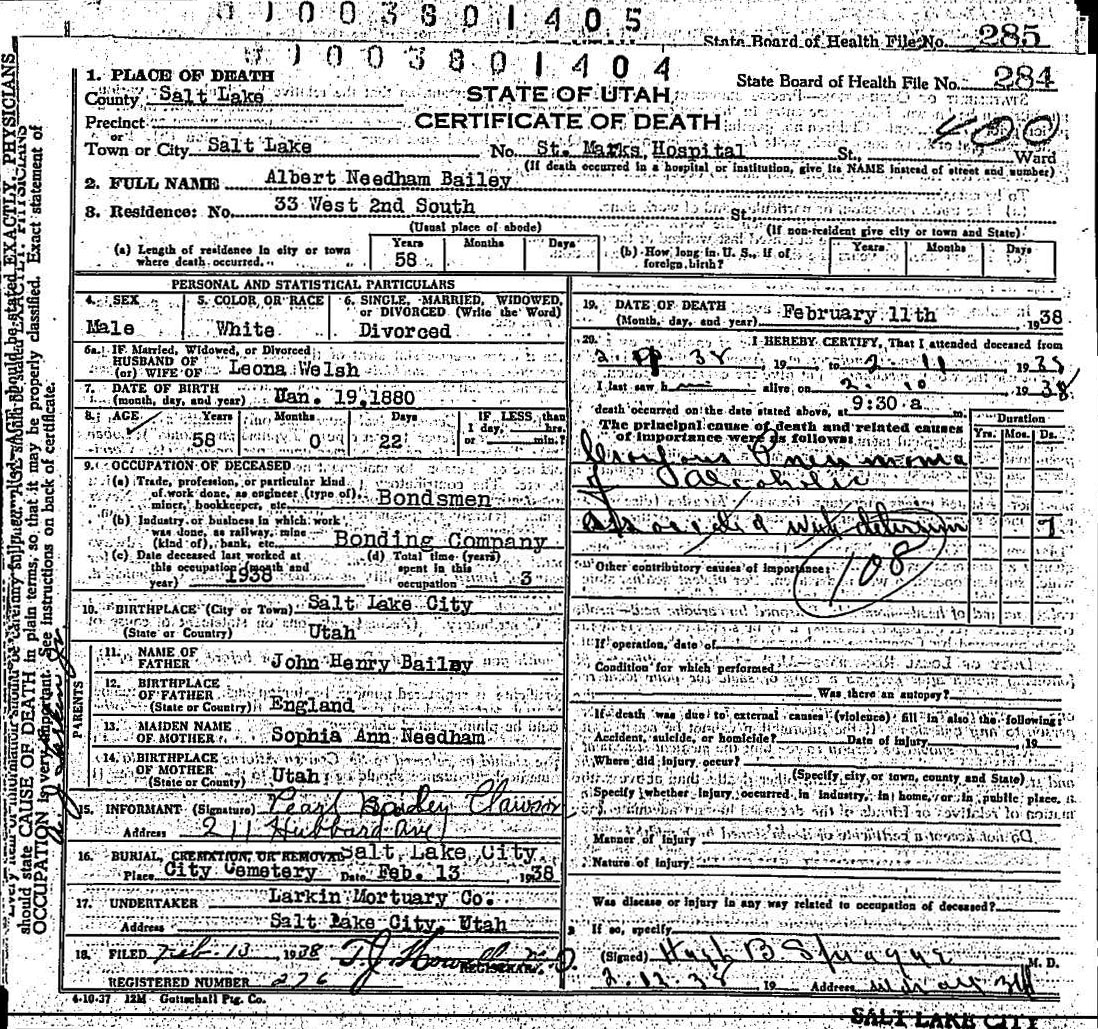 1003801405
State Board of Health File No. 285
1003801404
State Board of Health File No. 284
1. PLACE OF DEATH
County Salt Lake
STATE OF UTAH
CERTIFICATE OF DEATH
400
Precinct
or
Town or City Salt Lake No. St. Marks Hospital St., Ward
(If death occurred in a hospital or institution, give its NAME instead of street and number)
2. FULL NAME Albert Needham Bailey
3. Residence: No. 33 West 2nd South St.
(Usual place of abode) (If non-resident give city or town and State)
(a) Length of residence in city or town where death occurred. Years 58 Months Days
(b) How long in U. S., if of foreign birth? Years Months Days
PERSONAL AND STATISTICAL PARTICULARS
4. SEX Male
5. COLOR OR RACE White
6. SINGLE, MARRIED, WIDOWED, or DIVORCED (Write the Word) Divorced
6a. IF Married, Widowed, or Divorced
HUSBAND OF
(or) WIFE OF Leona Welsh
7. DATE OF BIRTH
(month, day, and year) Jan. 19, 1880
8. AGE Years 58 Months 0 Days 22 IF LESS than 1 day, hrs. or min.?
9. OCCUPATION OF DECEASED
(a) Trade, profession, or particular kind
of work done, as engineer (type of),
miner, bookkeeper, etc. Bondsmen
(b) Industry or business in which work
was done, as railway, mine
(kind of), bank, etc. Bonding Company
(c) Date deceased last worked at
this occupation (month and
year) 1938
(d) Total time (years)
spent in this
occupation 3
10. BIRTHPLACE (City or Town) Salt Lake City
(State or Country) Utah
PARENTS
11. NAME OF
FATHER John Henry Bailey
12. BIRTHPLACE
OF FATHER
(State or Country) England
13. MAIDEN NAME
OF MOTHER Sophia Ann Needham
14. BIRTHPLACE
OF MOTHER
(State or County) Utah
15. INFORMANT (Signature) Pearl Bailey Clawson
Address 211 Hubbard Ave
16. BURIAL, CREMATION, OR REMOVAL Salt Lake City
Place City Cemetery Date Feb. 13 1938
17. UNDERTAKER Larkin Mortuary Co.
Address Salt Lake City, Utah
18. FILED Feb. 13 1938 T.J. Howells
REGISTRAR.
REGISTERED NUMBER 276
4-10-37 12M Gottschall Ptg. Co.
19. DATE OF DEATH
(Month, day, and year) February 11th 1938
20. I HEREBY CERTIFY, That I attended deceased from
38, 19 to 2-11 1938
I last saw h alive on 2-10 1938
death occurred on the date stated above, at 9:30 a m.
The principal cause of death and related causes
of importance were as follows:
Duration
Yrs. Mos. Ds.
Pneumonia
Alcoholic
Associated with delerium 7
108
Other contributory causes of importance:
If operation, date of
Condition for which performed
Was there an autopsy?
If death was due to external causes (violence) fill in also the following:
Accident, suicide, or homicide? Date of injury 19
Where did injury occur?
(Specify city or town, county and State)
Specify whether injury occurred in industry, in home, or in public place.
Manner of injury
Nature of injury
Was disease or injury in any way related to occupation of deceased?
If so, specify
(Signed) Hugh B Sprague M. D.
2-12-38 19 Address
SALT LAKE CITY
should state CAUSE OF DEATH in plain terms, so that it may be properly classified. Exact statement of
OCCUPATION is very important. See instructions on back of certificate.